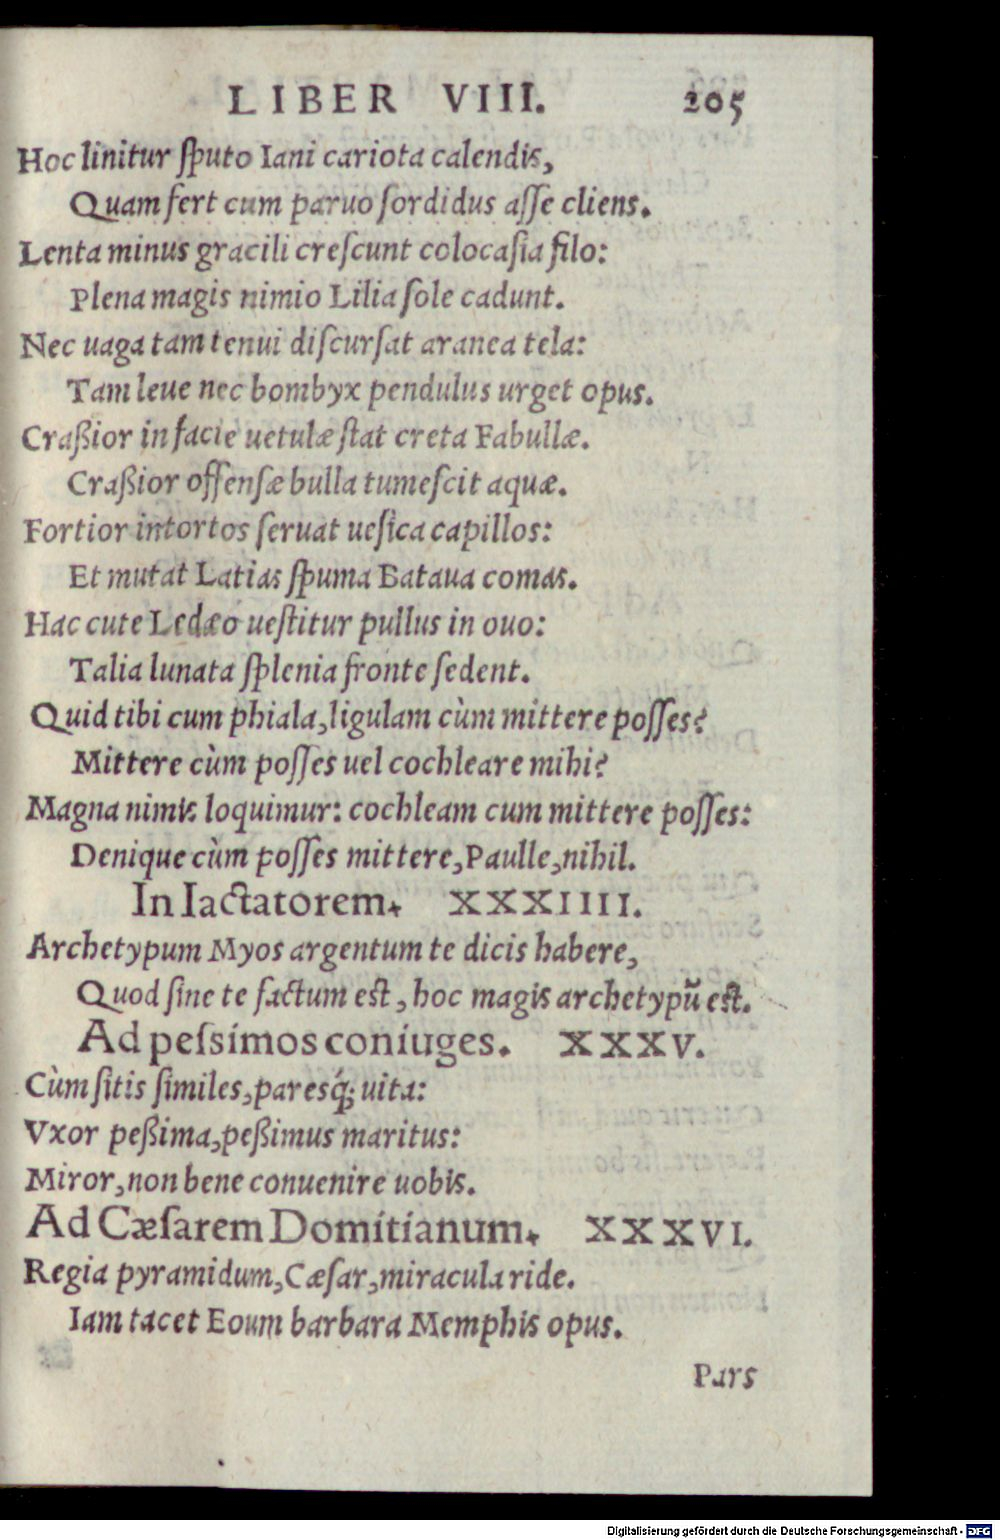 LIBER VIII. 205
Hoc linitur ſputo Iani cariota calendis,
Quam fert cum paruo ſordidus aſſe cliens.
Lenta minus gracili creſcunt colocaſia filo:
Plena magis nimio Lilia ſole cadunt.
Nec uaga tam tenui diſcurſat aranea tela:
Tam leue nec bombyx pendulus urget opus.
Craßior in facie uetulæ ſtat creta Fabullæ.
Craßior offenſæ bulla tumeſcit aquæ.
Fortior intortos ſeruat ueſica capillos:
Et mutat Latias ſpuma Bataua comas.
Hac cute Ledæo ueſtitur pullus in ouo:
Talia lunata ſplenia fronte ſedent.
Quid tibi cum phiala, ligulam cùm mittere poſſes?
Mittere cùm poſſes uel cochleare mihi?
Magna nimis loquimur: cochleam cum mittere poſſes:
Denique cùm poſſes mittere, Paulle, nihil.
In Iactatorem. XXXIIII.
Archetypum Myos argentum te dicis habere,
Quod ſine te factum eſt, hoc magis archetypũ eſt.
Ad peſsimos coniuges. XXXV.
Cùm ſitis ſimiles, paresq́; uita:
Vxor peßima, peßimus maritus:
Miror, non bene conuenire uobis.
Ad Cæſarem Domitianum. XXXVI.
Regia pyramidum, Cæſar, miracula ride.
Iam tacet Eoum barbara Memphis opus.
Pars
Digitalisierung gefördert durch die Deutsche Forschungsgemeinschaft - DFG